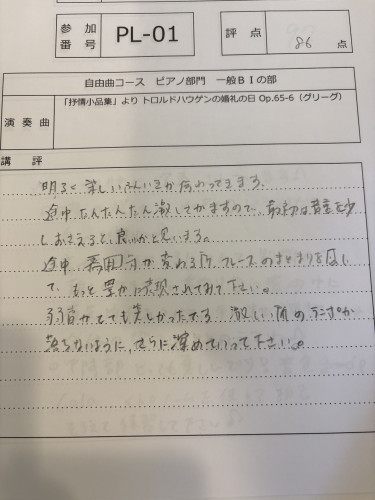 参加
番号
PL-01
評点
86 点
自由曲コース ピアノ部門 一般BⅠの部
演奏曲
「抒情小品集」より トロルドハウゲンの婚礼の日 Op.65-6（グリーグ）
講評
明るく楽しいふんいきが伝わってきます。
途中だんだんだん激してきますので、最初は音量を少
しおさえると良いかと思います。
途中、雰囲気が変わる所、フレーズのまとまりを
て、もっと豊かに表現されてみて下さい。
弱音がとても美しかったです。激しい所のテンポが
ないように、さらに深めていって下さい。